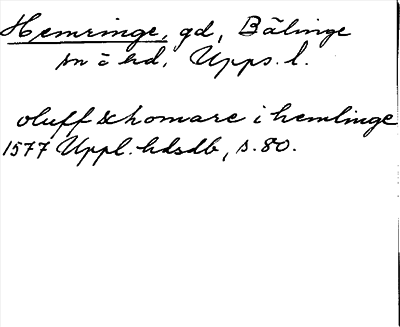 Hemringe, gd, Bälinge
sn o hd, Upps. l.
oluff skomare i hemlinge
1577 Uppl. hdsdb, s. 80.